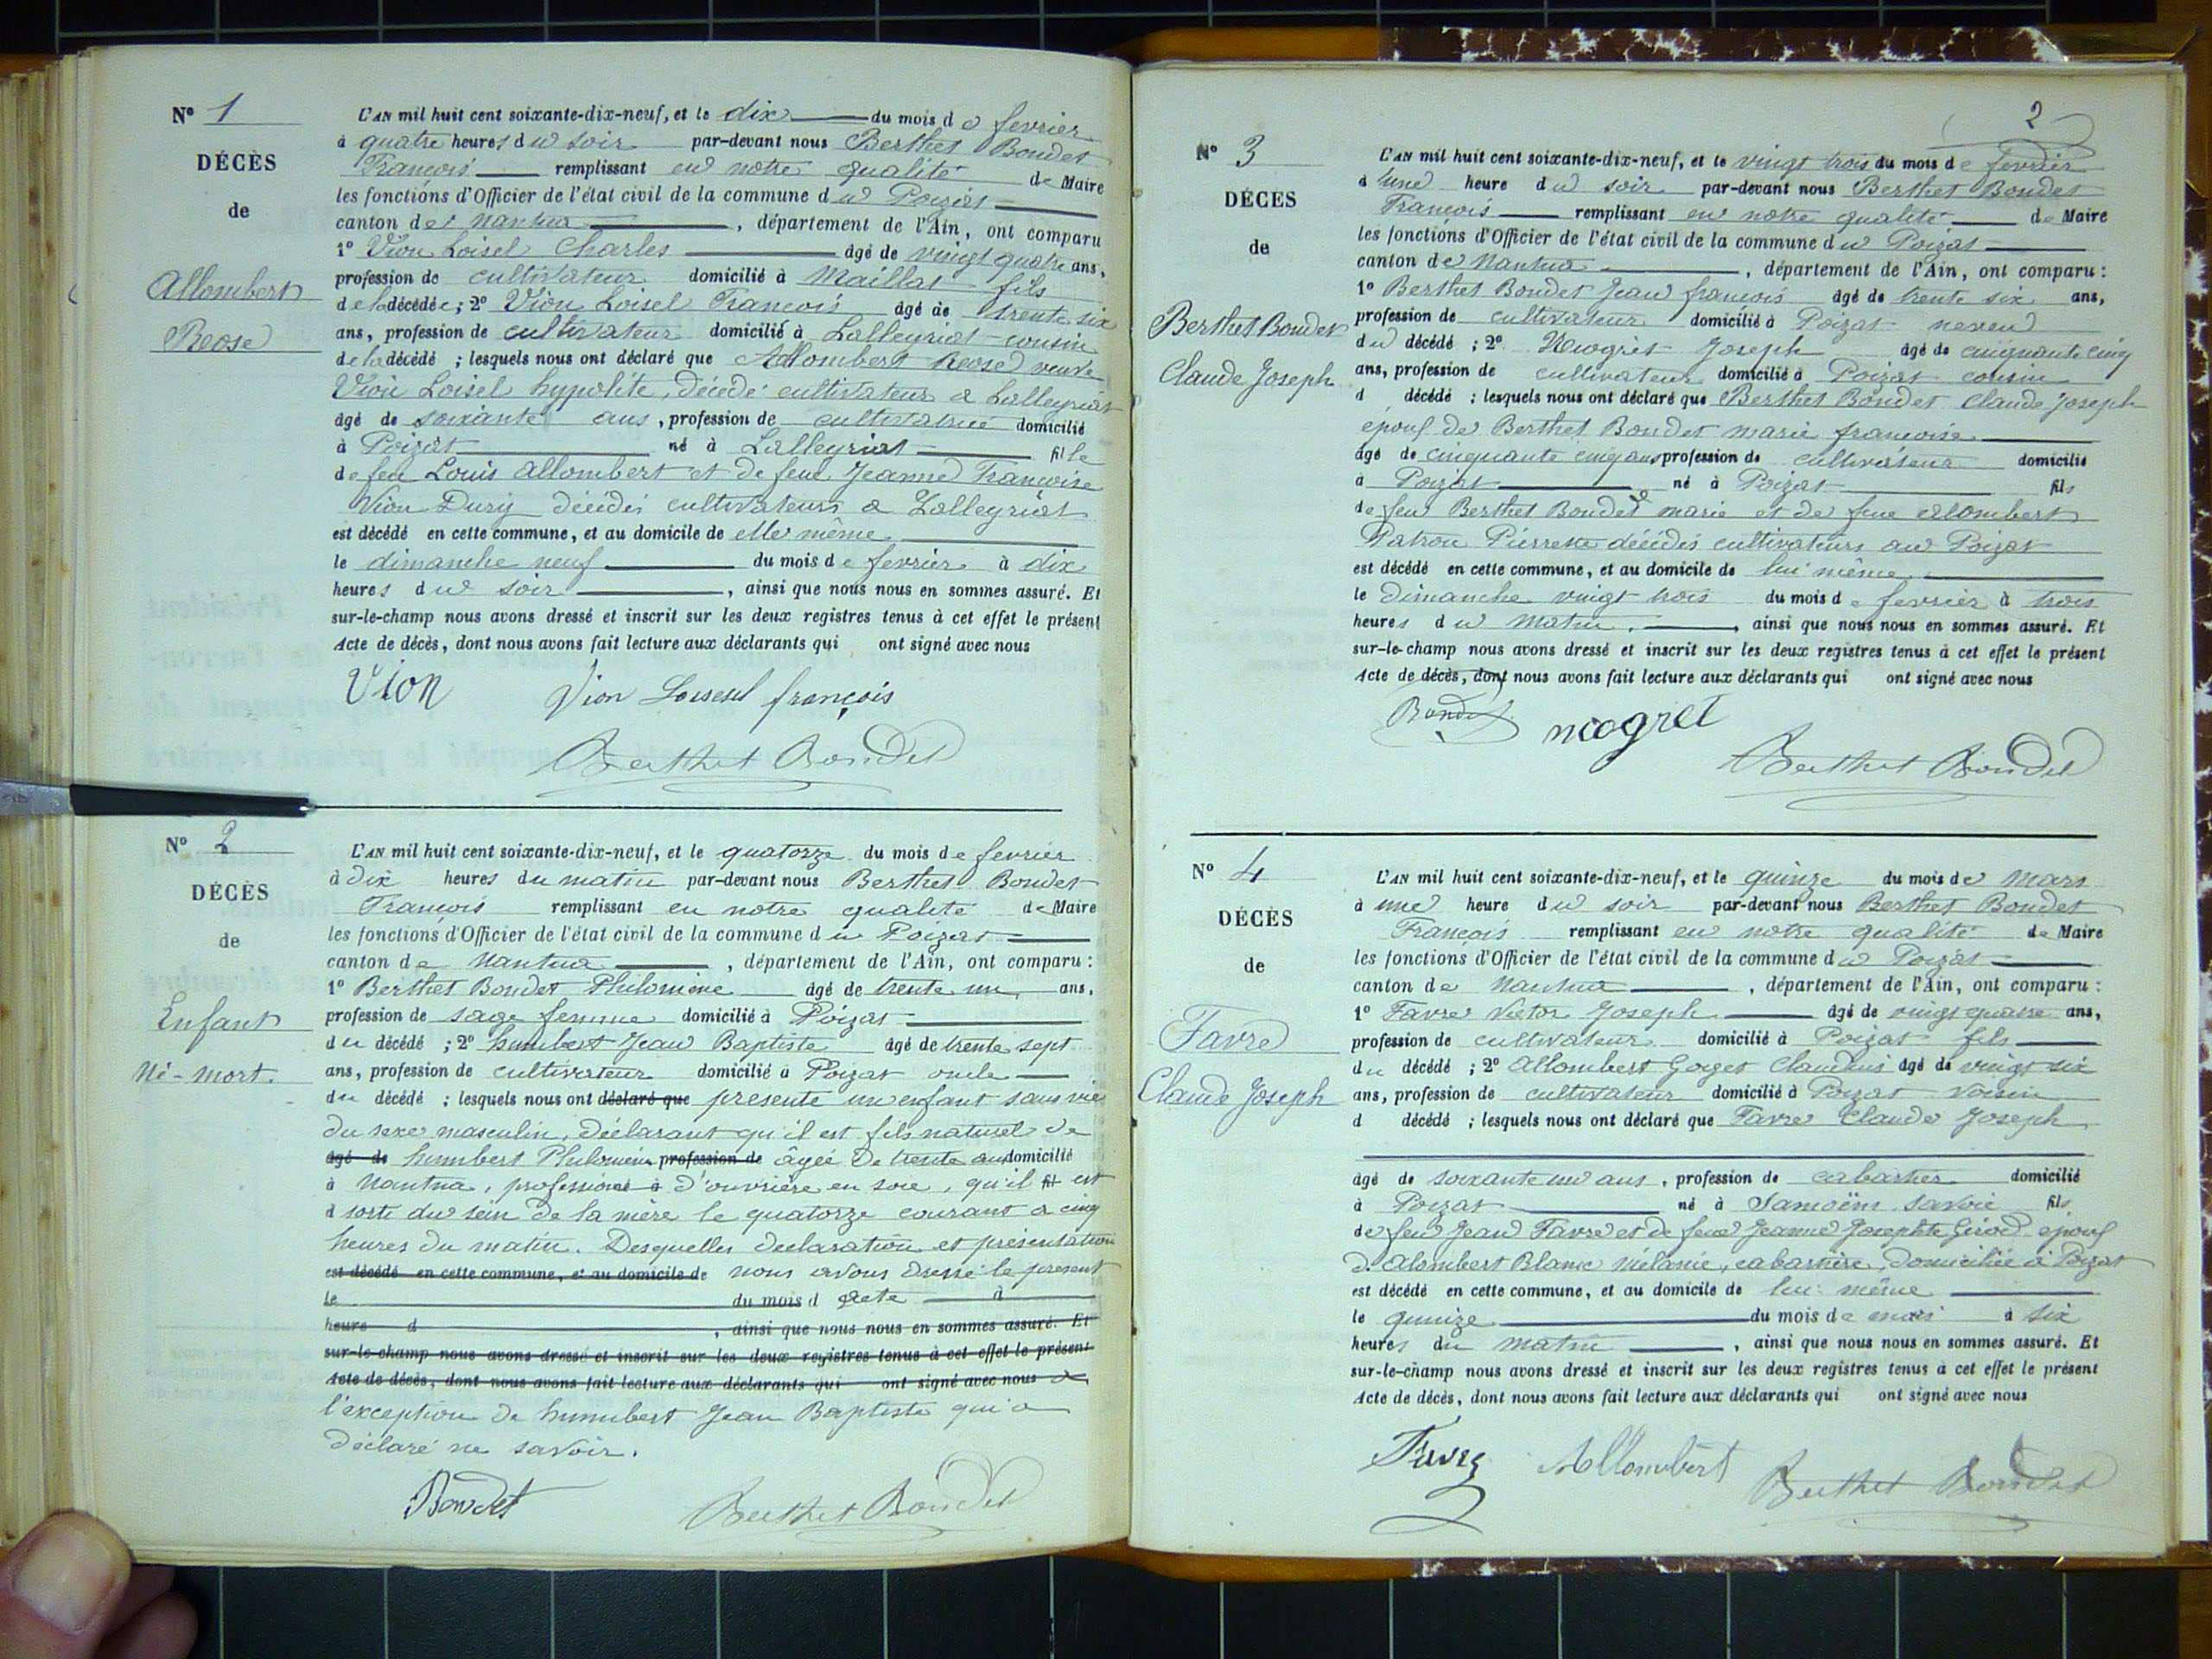 N° 1
DÉCÈS
de
Allombert
Reose
L'AN mil huit cent soixante-dix-neuf, et le dix du mois de fevrier
à quatre heures du soir par-devant nous Berthet Bondet
François remplissant en notre qualité de Maire
les fonctions d'Officier de l'état civil de la commune du Poizat
canton de Nantua , département de l'Ain, ont comparu
1° Vion Loisel Charles âgé de vingt quatre ans,
profession de cultivateur domicilié à Maillat fils
de la décédée ; 2° Vion Loisel François âgé de trente six
ans, profession de cultivateur domicilié à Lalleyriat cousin
de la décédé ; lesquels nous ont déclaré que Allombert Reose veuve
Vion Loisel hypolite, décédé cultivateur a Lalleyriat
âgé de soixante ans , profession de cultivatrice domicilié
à Poizat né à Lalleyriat fille
de feu Louis Allombert et de feue Jeanne Françoise
Vion Dury décédés cultivateurs a Lalleyriat
est décédé en cette commune, et au domicile de elle même
le dimanche neuf du mois de fevrier à dix
heures du soir , ainsi que nous nous en sommes assuré. Et
sur-le-champ nous avons dressé et inscrit sur les deux registres tenus à cet effet le présent
Acte de décès, dont nous avons fait lecture aux déclarants qui ont signé avec nous
Vion Vion Loisesel françois
Berthet Bondet
N° 2
DÉCÈS
de
Enfant
Né-mort.
L'AN mil huit cent soixante-dix-neuf, et le quatorze du mois de fevrier
à dix heures du matin par-devant nous Berthet Bondet
François remplissant en notre qualité de Maire
les fonctions d'Officier de l'état civil de la commune du Poizat
canton de Nantua , département de l'Ain, ont comparu :
1° Berthet Bondet Philomène âgé de trente un ans,
profession de sage femme domicilié à Poizat
du décédé ; 2° humbert Jean Baptiste âgé de trente sept
ans, profession de cultivateur domicilié à Poizat oncle
du décédé ; lesquels nous ont déclaré que presenté un enfant sans vie
du sexe masculin, déclarant qu'il est fils naturel de
âgé de humbert Philomène profession de âgée de trente ans domicilié
à Nantua, profession d'ouvrière en soie, qu'il fil est
d sorti du sein de la mère le quatorze courant a cinq
heures du matin. Desquelles declaration et présentation
est décédé en cette commune, et au domicile de nous avons dressé le present
le du mois d acte à
heure d , ainsi que nous nous en sommes assuré. Et
sur-le-champ nous avons dressé et inscrit sur les deux registres tenus à cet effet le présent
Acte de décès, dont nous avons fait lecture aux déclarants qui ont signé avec nous a
l'exception de humbert Jean Baptiste qui a
déclaré ne savoir.
Bondet Berthet Bondet
2
N° 3
DÉCÈS
de
Berthet Bondet
Claude Joseph
L'AN mil huit cent soixante-dix-neuf, et le vingt trois du mois de fevrier
à une heure du soir par-devant nous Berthet Bondet
François remplissant en notre qualité de Maire
les fonctions d'Officier de l'état civil de la commune du Poizat
canton de Nantua , département de l'Ain, ont comparu :
1° Berthet Bondet Jean françois âgé de trente six ans,
profession de cultivateur domicilié à Poizat neveu
du décédé ; 2° Neogret Joseph âgé de cinquante cinq
ans, profession de cultivateur domicilié à Poizat cousin
d décédé ; lesquels nous ont déclaré que Berthet Bondet Claude Joseph
epouf de Berthet Bondet marie françoise
âgé de cinquante cinq ans, profession de cultivateur domicilié
à Poizat né à Poizat fils
de feu Berthet Bondet marie et de feue alombert
Patron Pierrette décédés cultivateurs au Poizat
est décédé en cette commune, et au domicile de lui même
le Dimanche vingt trois du mois de fevrier à trois
heures du matin. , ainsi que nous nous en sommes assuré. Et
sur-le-champ nous avons dressé et inscrit sur les deux registres tenus à cet effet le présent
Acte de décès, dont nous avons fait lecture aux déclarants qui ont signé avec nous
Bondet neogret
Berthet Bondet
N° 4
DÉCÈS
de
Favre
Claude Joseph
L'AN mil huit cent soixante-dix-neuf, et le quinze du mois de mars
à une heure du soir par-devant nous Berthet Bondet
François remplissant en notre qualité de Maire
les fonctions d'Officier de l'état civil de la commune du Poizat
canton de Nantua , département de l'Ain, ont comparu :
1° Favre Victor Joseph âgé de vingt quatre ans,
profession de cultivateur domicilié à Poizat fils
du décédé ; 2° Allombert Goget Claudius âgé de vingt six
ans, profession de cultivateur domicilié à Poizat voisin
d décédé ; lesquels nous ont déclaré que Favre Claude Joseph
âgé de soixante un ans , profession de cabartier domicilié
à Poizat né à Samoëns savoie fils
de feu Jean Favre et de feue Jeanne Josephte Girod epouf
d. alombert Blanc mélanie, cabartière, domiciliée à Poizat
est décédé en cette commune, et au domicile de lui même
le quinze du mois de mars à six
heures du matin , ainsi que nous nous en sommes assuré. Et
sur-le-champ nous avons dressé et inscrit sur les deux registres tenus à cet effet le présent
Acte de décès, dont nous avons fait lecture aux déclarants qui ont signé avec nous
Favre Allombert Berthet Bondet